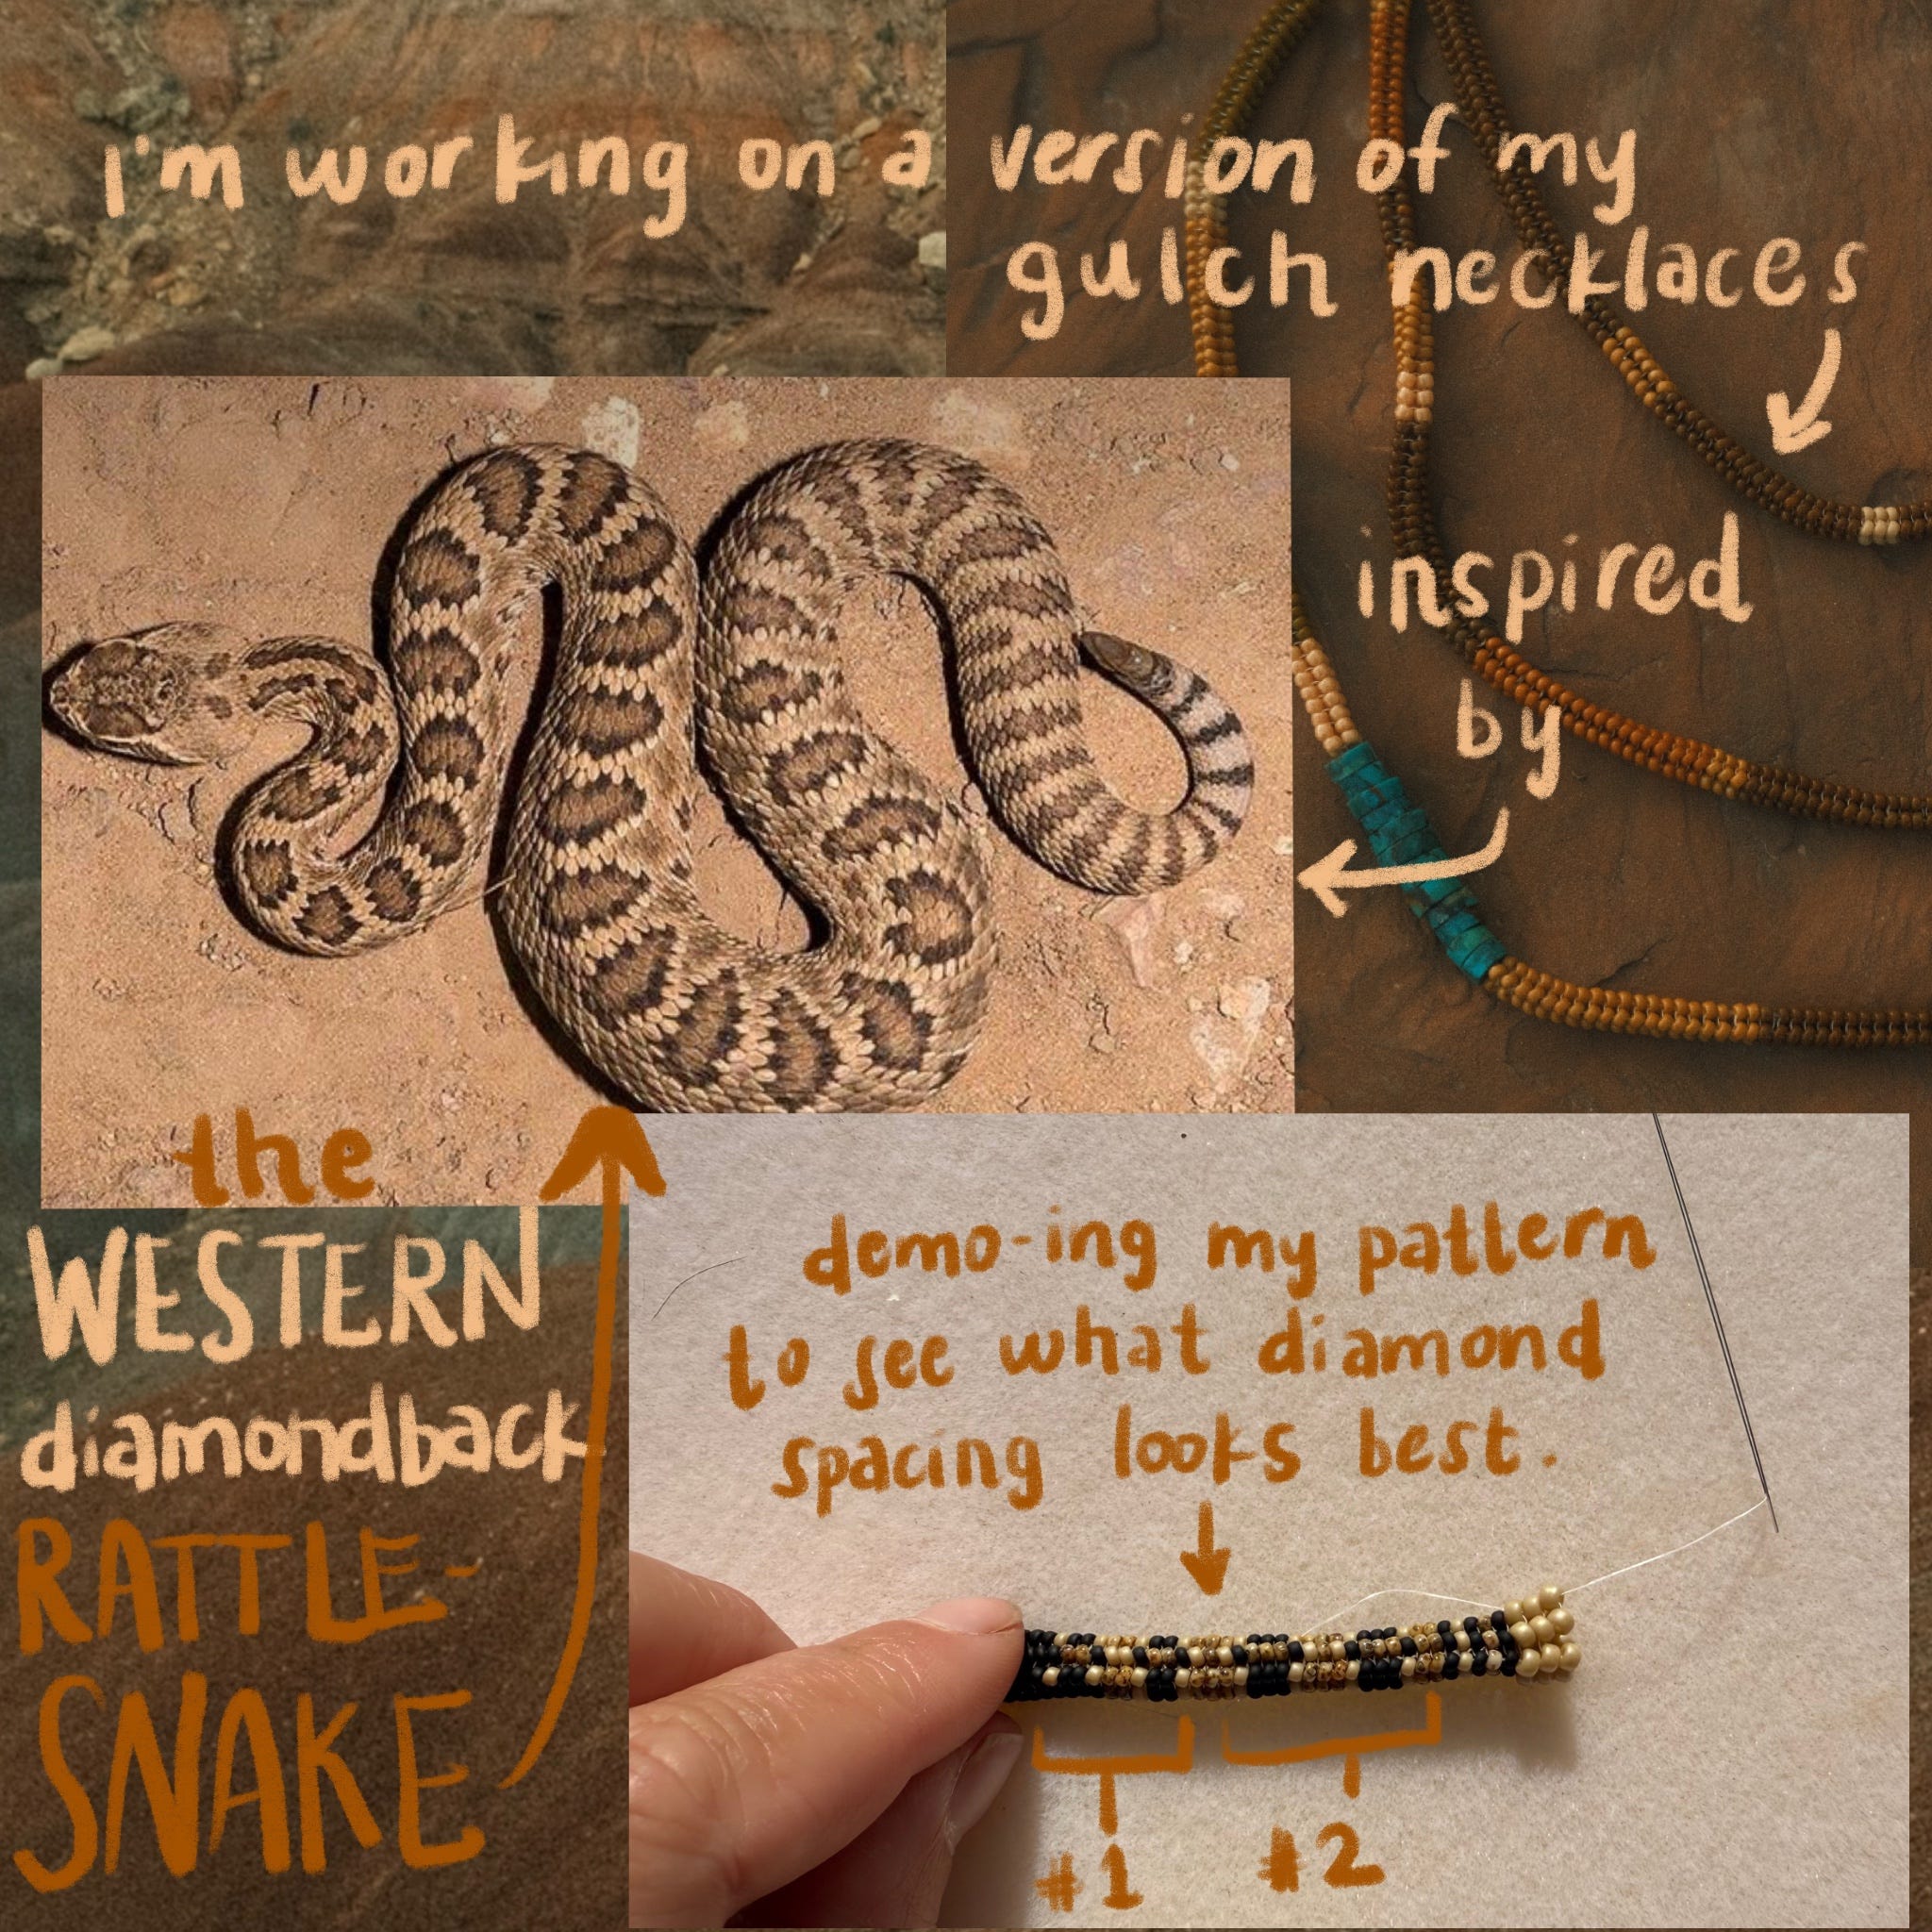 i'm working on a version of my
gulch necklaces
inspired
by
the
WESTERN
diamondback
RATTLE-
SNAKE
demo-ing my pattern
to see what diamond
spacing looks best.
#1 #2